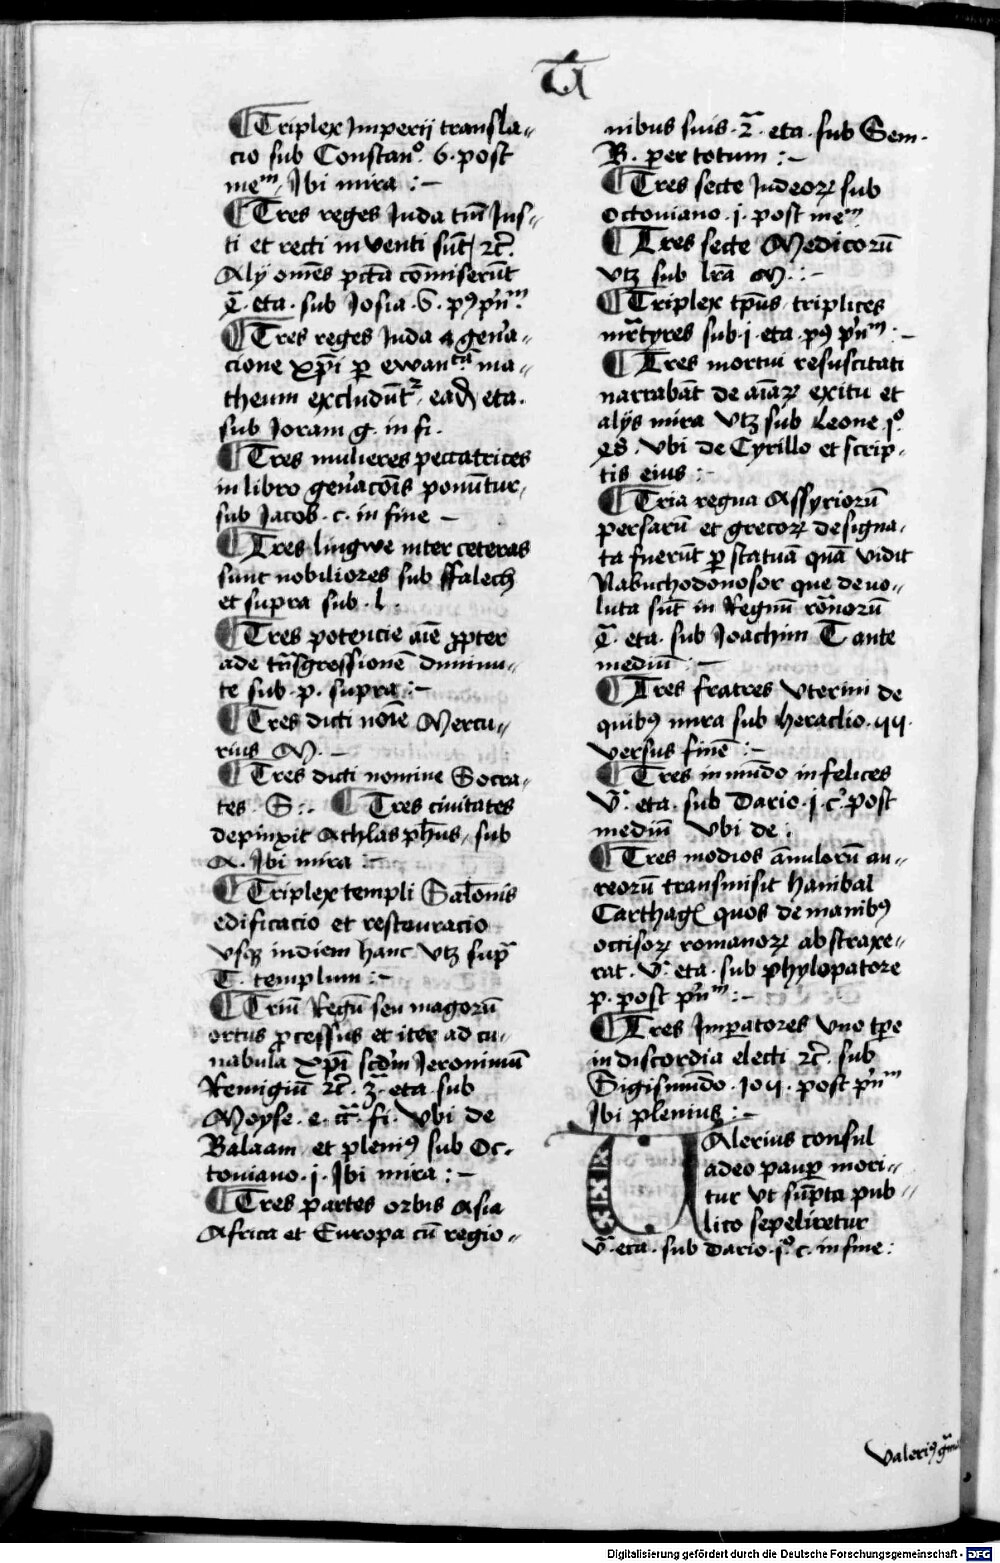 T U
¶ Triplex Imperij transla-
cio sub Constanº. 6. post
meᵐ, Ibi mira :-
¶ Tres reges Iuda tm̄ Ius-
ti et recti inventi sūt, ⁊c̄.
Alij om̄es pctā cōmiserūt
eta. sub Iosia. 6. pꝰ pⁱnᵐ.
¶ Tres reges Iuda a gen̄a-
cione xp̄i ꝑ ewan ma-
theum excludūtᷣ, ead eta.
sub Ioram g. in fi.
¶ Tres mulieres peccatrices
in libro gen̄acōis ponūtur,
sub Iacob. c. in fine -
¶ Tres lingwe inter ceteras
sunt nobiliores sub ffalech
et supra sub. l.
¶ Tres potencie aīe ꝓpter
ade trāsgressionē diminu-
te sub. p. supra :-
¶ Tres dicti noīe Mercu-
rius M. -
¶ Tres dicti nomine Socra-
tes. S :. ¶ Tres ciuitates
depinxit Athlas ph̄us, sub
A. Ibi mira :-
¶ Triplex templi Salōnis
edificacio et restauracio
vsqꝫ in diem hanc vtꝫ supᷓ
T. templum :-
¶ Triū Regū seu magorū
ortus ꝓcessus et iter ad cu-
nabula xp̄i scd̄m Ieronimū
Remigiū ⁊c̄. 3ᷓ. eta. sub
Moyse. e. fi. vbi de
Balaam, et pleniꝰ sub Oc-
toniano. j. Ibi mira :-
¶ Tres partes orbis Asia
Affrica et Europa cū regio-
nibus suis. 2ᷓ. eta. sub Sem.
B. per totum :-
¶ Tres secte Iudeoꝝ sub
octoniano. j. post meᵐ
¶ Tres secte Medicorū
vtꝫ sub lrā M. :-
¶ Triplex tp̄us, triplices
mr̄tyres sub. j. eta. pꝰ pⁱnᵐ. -
¶ Tres mortui resuscitati
narrabāt de aīaꝝ exitu et
alijs mira vtꝫ sub Leone jº.
vbi de Cyrillo et scrip-
tis eius :-
¶ Tria regna Assyriorū
persarū et grecoꝝ designa-
ta fuerūt ꝑ statuā quā vidit
Nabuchodonosor que deuo-
luta sūt in Regnū rōnorū
eta. sub Ioachim T ante
mediū :-
¶ Tres fratres vterini de
quibꝰ mira sub heraclio. 44.
versus finē :-
¶ Tres in mūdo infelices
v̄. eta. sub Dario. j. c. post
mediū vbi de :
¶ Tres modios ānulorū au-
reorū transmisit Hanibal
Carthag quos de manibꝰ
occisoꝝ romanoꝝ abstraxe-
rat. v̄. eta. sub phylopatore
p. post pⁱnᵐ :-
¶ Tres Imꝑatores vno tp̄e
in discordia electi ⁊c̄. sub
Sigismūdo. post pⁱnᵐ
Ibi plenius :-
Valerius consul
adeo pauꝑ mori-
tur vt sūpta pub-
lico sepeliretur
v̄. eta. sub dario. jº. c. in fine :
Valeriꝰ
Digitalisierung gefördert durch die Deutsche Forschungsgemeinschaft - DFG